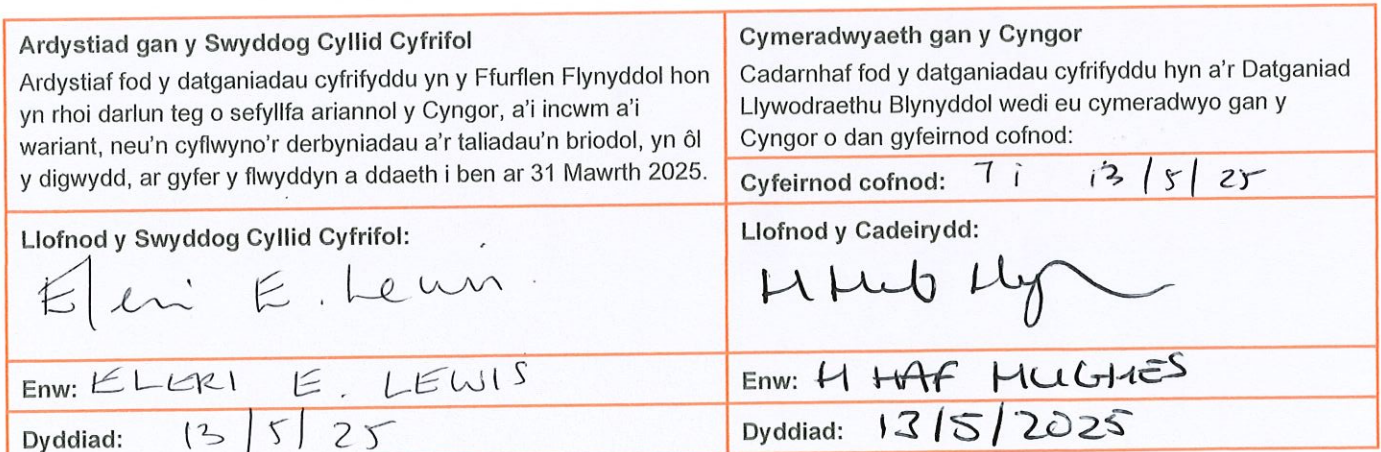 Ardystiad gan y Swyddog Cyllid Cyfrifol
Ardystiaf fod y datganiadau cyfrifyddu yn y Ffurflen Flynyddol hon
yn rhoi darlun teg o sefyllfa ariannol y Cyngor, a'i incwm a'i
wariant, neu'n cyflwyno'r derbyniadau a'r taliadau'n briodol, yn ôl
y digwydd, ar gyfer y flwyddyn a ddaeth i ben ar 31 Mawrth 2025.
Llofnod y Swyddog Cyllid Cyfrifol:
Eleri E. Lewis
Enw: ELERI E. LEWIS
Dyddiad: 13/5/25
Cymeradwyaeth gan y Cyngor
Cadarnhaf fod y datganiadau cyfrifyddu hyn a'r Datganiad
Llywodraethu Blynyddol wedi eu cymeradwyo gan y
Cyngor o dan gyfeirnod cofnod:
Cyfeirnod cofnod: 7 i 13/5/25
Llofnod y Cadeirydd:
Enw: H HAF HUGHES
Dyddiad: 13/5/2025